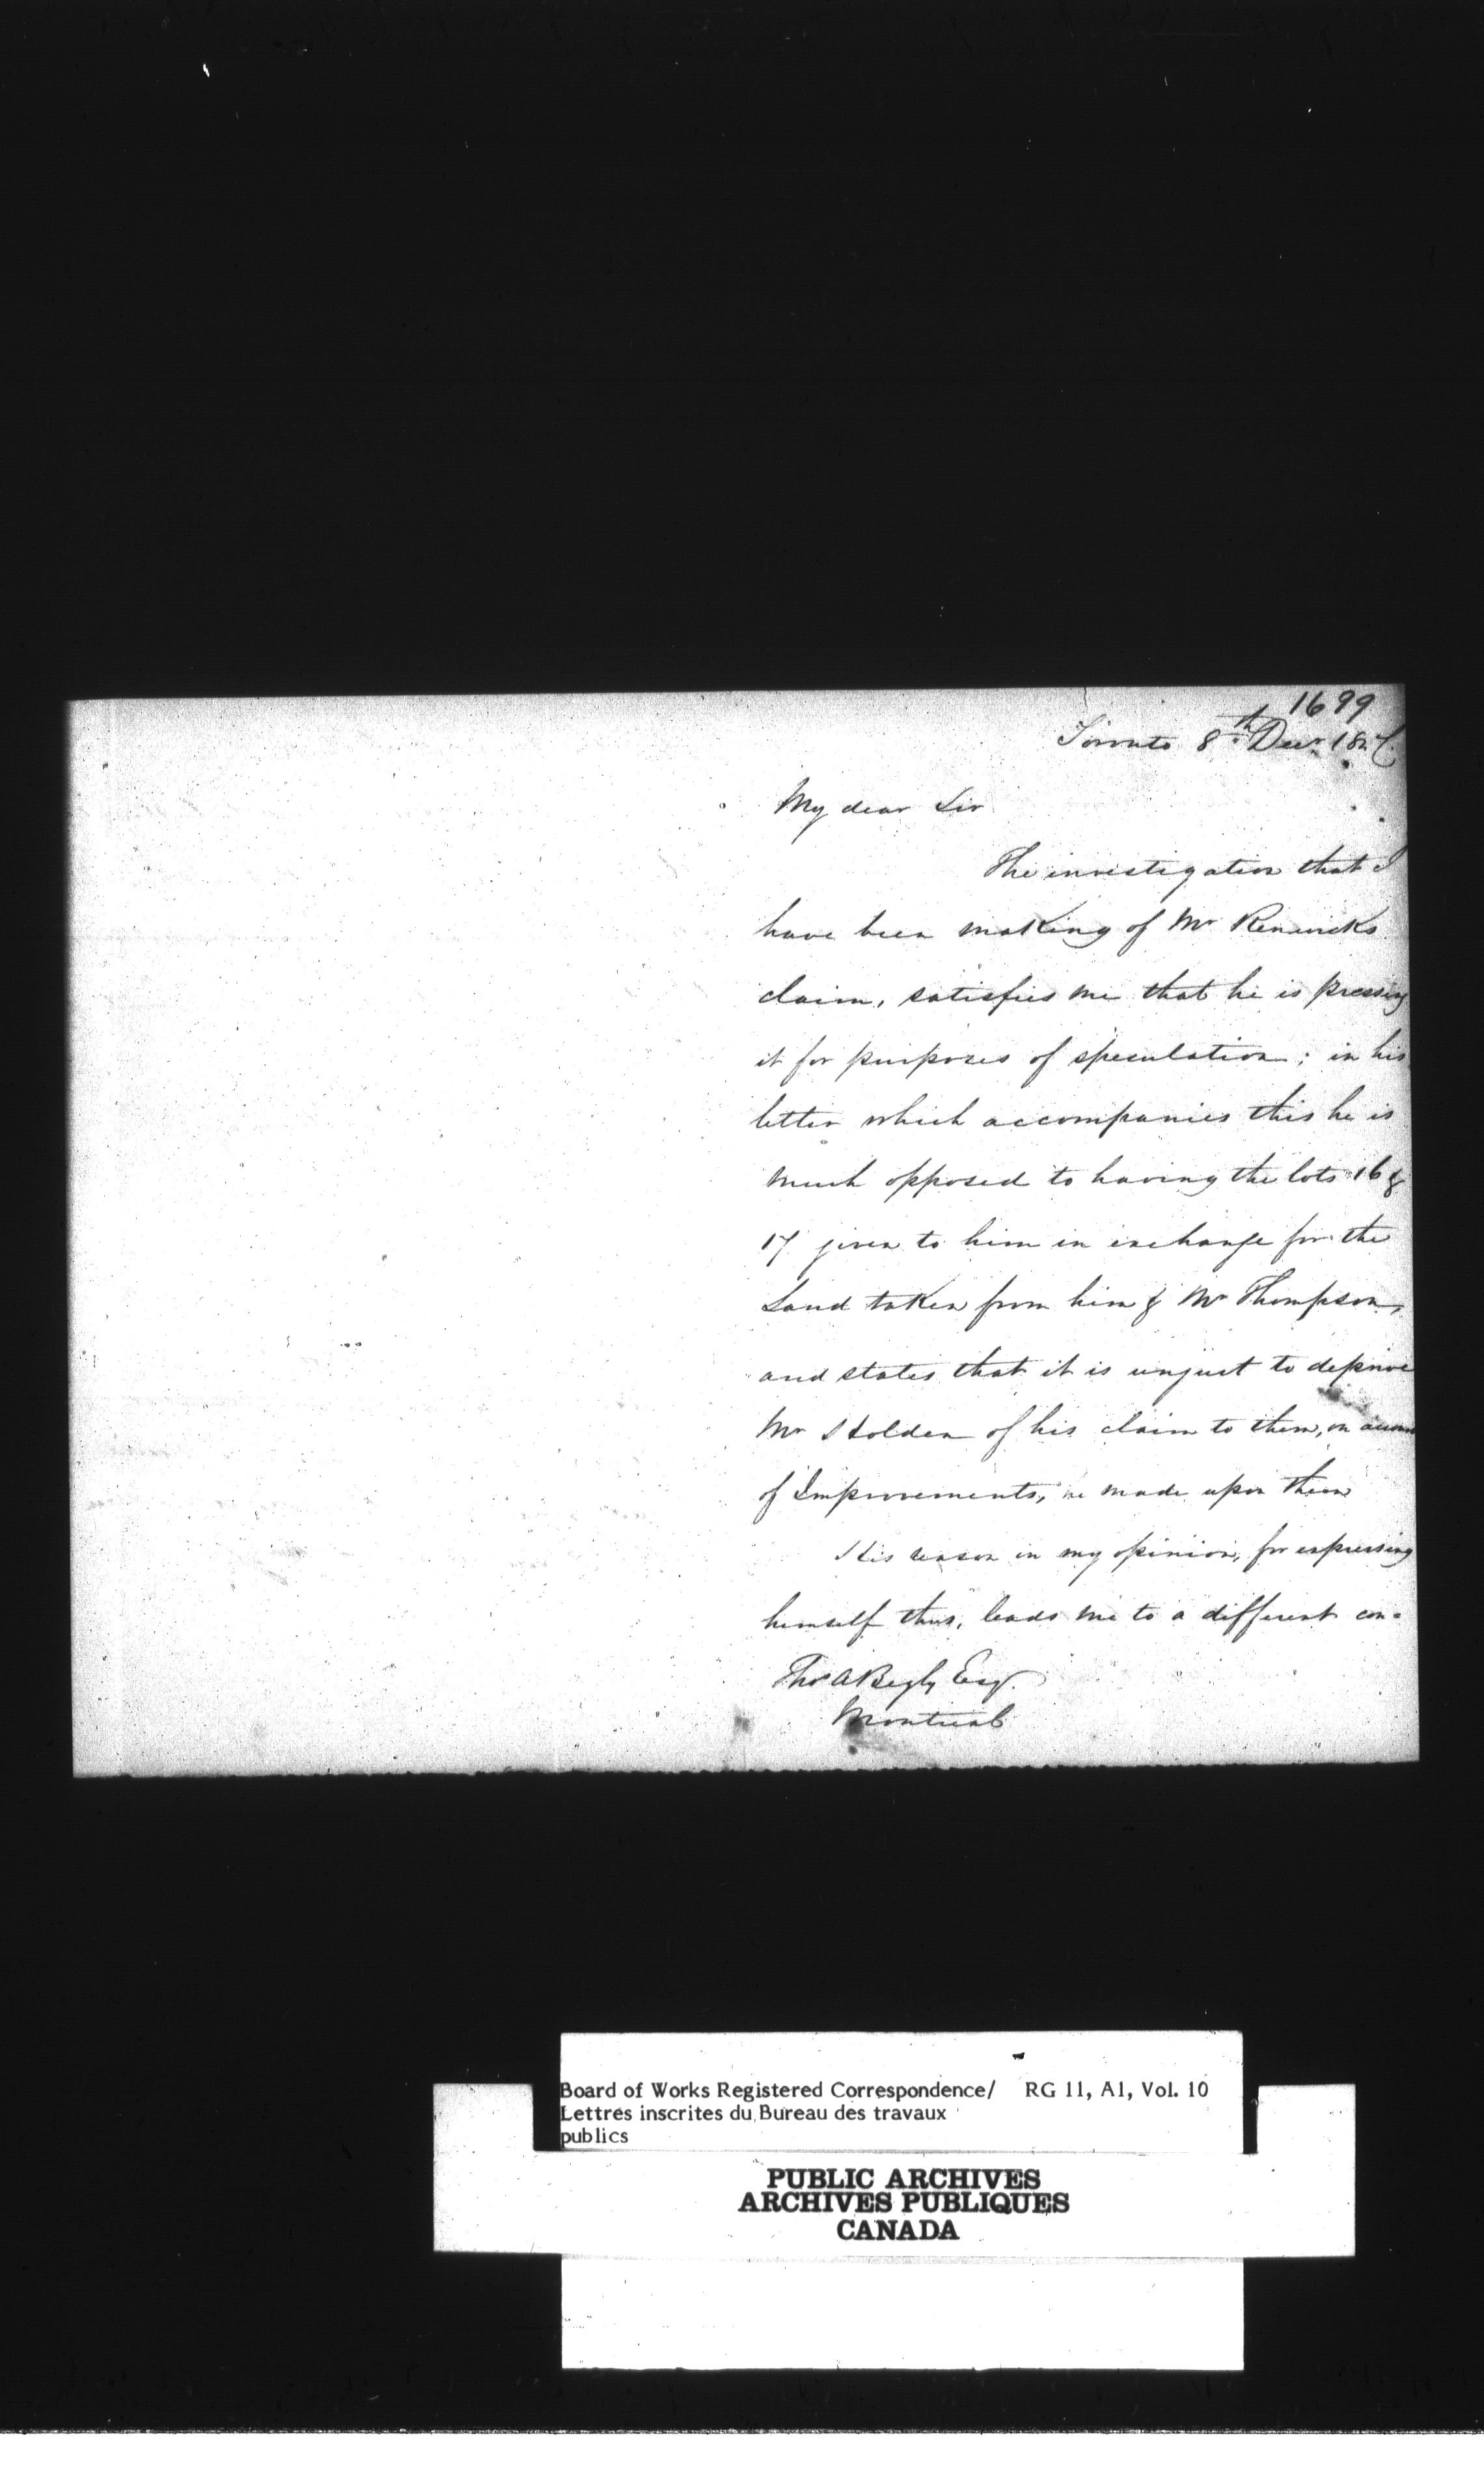 1699
Toronto 8th Decr
My dear Sir
The investigation that I
have been making of Mr Renwicks
claim, satisfies me that he is pressing
it for purposes of speculation; in his
letter which accompanies this he is
much opposed to having the lots 16 &
17 given to him in exchange for the
Land taken from him & Mr Thompson,
and states that it is unjust to deprive
Mr Holden of his claim to them, on
of Improvements, he made upon them
His reason in my opinion, for expressing
himself thus, leads me to a different con=
Thos A Begly Esqr.
Montreal
Board of Works Registered Correspondence/ RG 11, A1, Vol. 10
Lettres inscrites du Bureau des travaux
publics
PUBLIC ARCHIVES
ARCHIVES PUBLIQUES
CANADA